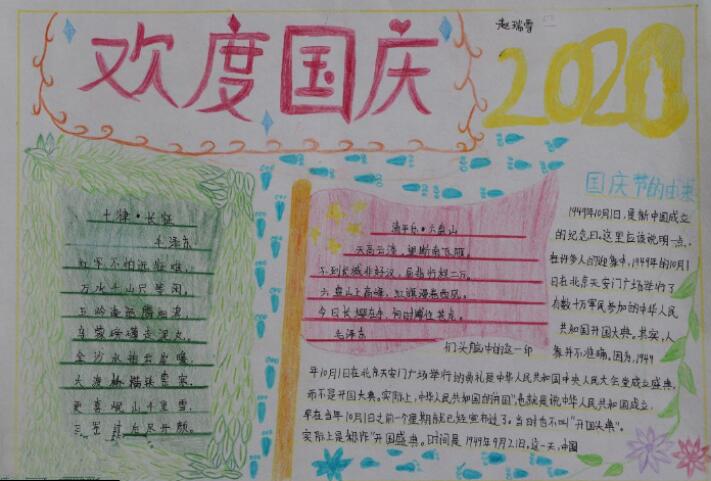 欢度国庆
赵瑞雪
2020
七律·长征
毛泽东
红军不怕远征难,
万水千山只等闲。
五岭逶迤腾细浪,
乌蒙磅礴走泥丸。
金沙水拍云崖暖,
大渡桥横铁索寒。
更喜岷山千里雪,
三军过后尽开颜。
清平乐·六盘山
天高云淡,望断南飞雁。
不到长城非好汉,屈指行程二万。
六盘山上高峰,红旗漫卷西风。
今日长缨在手,何时缚住苍龙。
毛泽东
国庆节的由来
1949年10月1日,是新中国成立
的纪念日。这里应该说明一点,
在许多人的印象中,1949年的10月1
日在北京天安门广场举行了
有数十万军民参加的中华人民
共和国开国大典。其实,人
们头脑中的这一印
象并不准确。因为,1949
年10月1日在北京天安门广场举行的典礼是中华人民共和国中央人民政府成立盛典,
而不是开国大典。实际上,中华人民共和国的"开国",也就是说中华人民共和国成立,
早在当年10月1日之前一个星期前就已经宣布过了。当时也不叫"开国大典"。
实际上是称作"开国盛典"。时间是1949年9月21日。这一天,中国